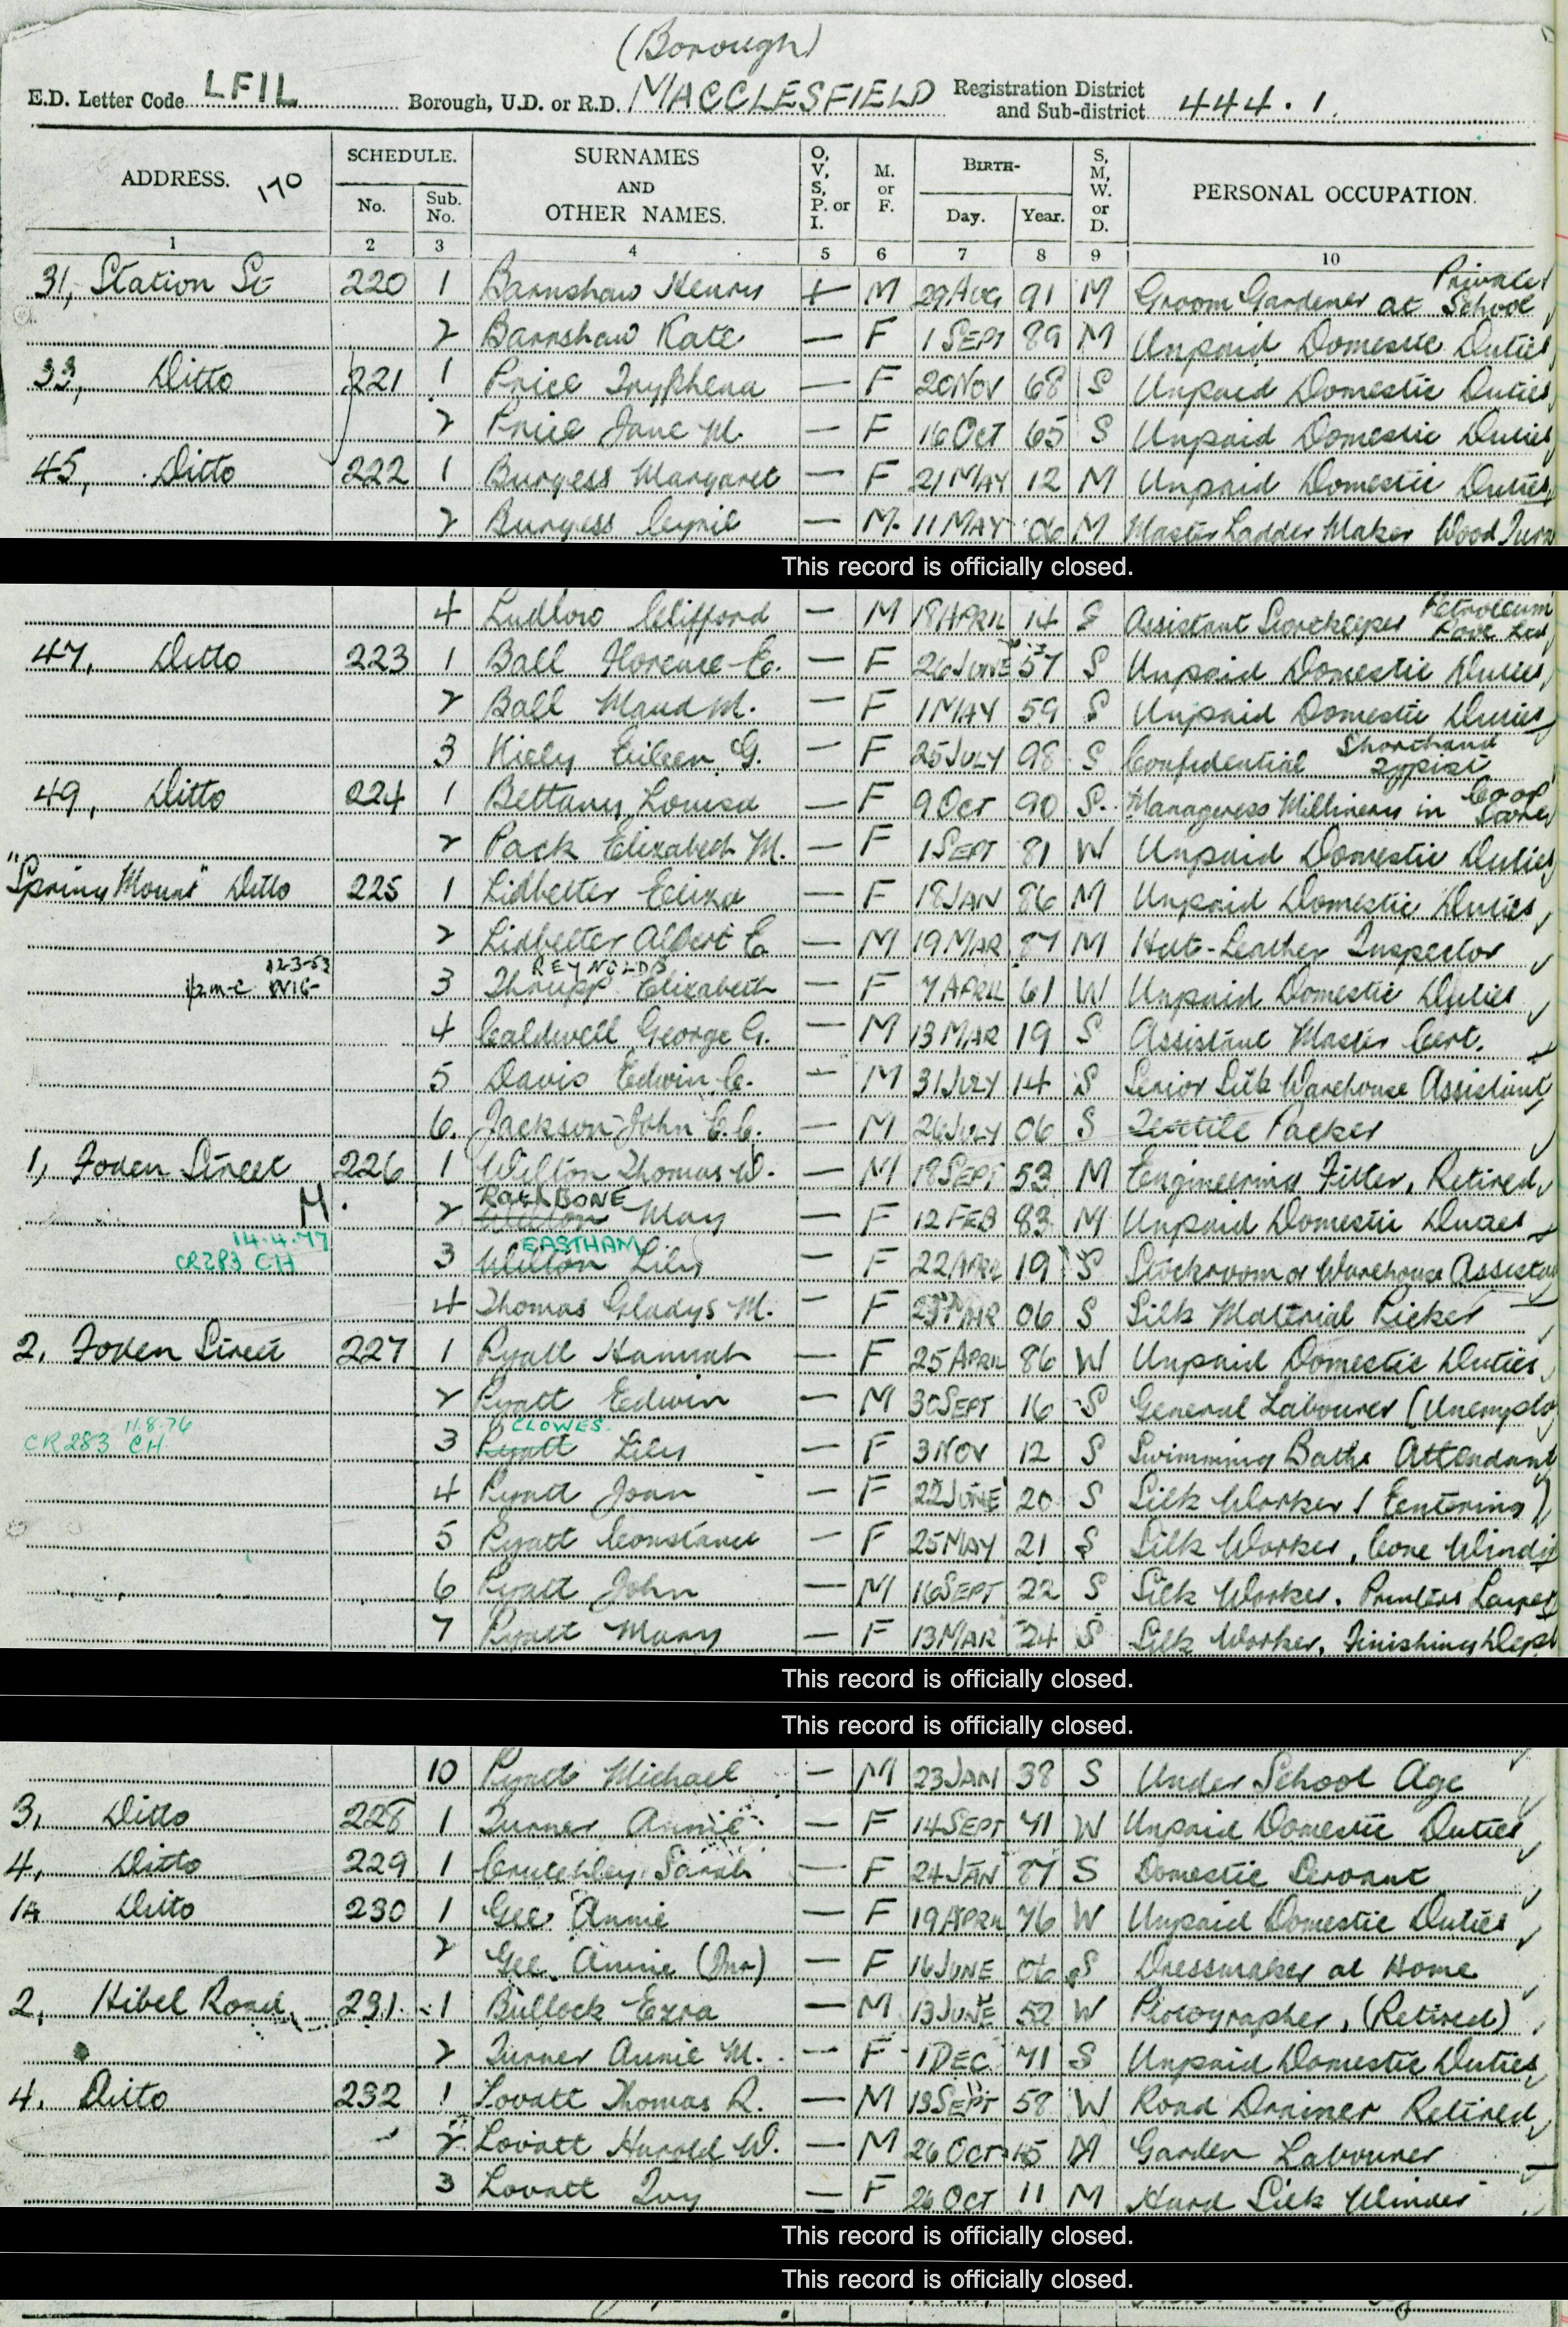 (Borough)
E.D. Letter Code LFIL Borough, U.D. or R.D. MACCLESFIELD Registration District and Sub-district 444.1.
ADDRESS. 170 SCHEDULE. No. Sub. No. SURNAMES AND OTHER NAMES. O, V, S, P. or I. M. or F. BIRTH- Day. Year. S, M, W. or D. PERSONAL OCCUPATION.
1 2 3 4 5 6 7 8 9 10
31, Station St 220 1 Barnshaw Henry + M 29 AUG 91 M Groom Gardener at Private School
2 Barnshaw Kate — F 1 SEPT 89 M Unpaid Domestic Duties
33, Ditto 221 1 Price Tryphena — F 20 NOV 68 S Unpaid Domestic Duties
2 Price Jane M. — F 16 Oct 65 S Unpaid Domestic Duties
45, Ditto 222 1 Burgess Margaret — F 21 MAY 12 M Unpaid Domestic Duties
2 Burgess Cyril — M. 11 MAY 06 M Master Ladder Maker Wood Turn
This record is officially closed.
4 Ludlow Clifford — M 18 APRIL 14 S Assistant Storekeeper Petroleum
47, Ditto 223 1 Ball Florence E. — F 26 JUNE 57 S Unpaid Domestic Duties
2 Ball Maud M. — F 1 MAY 59 S Unpaid Domestic Duties
3 Kiely Eileen G. — F 25 JULY 98 S Confidential Shorthand Typist
49, Ditto 224 1 Bettany Louisa — F 9 Oct 90 S. Manageress Millinery in Coop Stores
2 Pack Elizabeth M. — F 1 SEPT 81 W Unpaid Domestic Duties
"Spring Mount" Ditto 225 1 Lidbetter Eliza — F 18 JAN 86 M Unpaid Domestic Duties
2 Lidbetter Albert E — M 19 MAR 87 M Hat-Leather Inspector
12-3-53 REYNOLDS
3 Thrupp Elizabeth — F 7 APRIL 61 W Unpaid Domestic Duties
4 Caldwell George G. — M 13 MAR 19 S Assistant Master Cert.
5 Davis Edwin C. — M 31 JULY 14 S Senior Silk Warehouse Assistant
6. Jackson John C.C. — M 26 JULY 06 S Textile Packer
1, Foden Street 226 1 Wilton Thomas W. — M 18 SEPT 53 M Engineering Fitter, Retired
M. RATHBONE
2 Wilton May — F 12 FEB 83 M Unpaid Domestic Duties
14.4.77 EASTHAM
CR283 CH 3 Wilton Lily F 22 APRIL 19 S Stockroom or Warehouse Assistan
4 Thomas Gladys M. — F 29 MAR 06 S Silk Material Picker
2, Foden Street 227 1 Ryatt Hannah — F 25 APRIL 86 W Unpaid Domestic Duties
2 Ryatt Edwin — M 30 SEPT 16 S General Labourer (Unemplo
11.8.76 CLOWES
CR 283 CH 3 Ryatt Lily — F 3 NOV 12 S Swimming Baths Attendant
4 Ryatt Joan — F 22 JUNE 20 S Silk Worker (Tentering)
5 Ryatt Constance — F 25 MAY 21 S Silk Worker, Cone Windi
6 Ryatt John — M 16 SEPT 22 S Silk Worker. Printers
7 Ryatt Mary — F 13 MAR 24 S Silk Worker, Finishing Dept
This record is officially closed.
This record is officially closed.
10 Ryatt Michael — M 23 JAN 38 S Under School Age
3, Ditto 228 1 Turner Annie — F 14 SEPT 71 W Unpaid Domestic Duties
4, Ditto 229 1 Crutchley Sarah — F 24 JAN 87 S Domestic Servant
1A Ditto 230 1 Gee Annie — F 19 APRIL 76 W Unpaid Domestic Duties
2 Gee Annie (Jnr) — F 16 JUNE 06 S Dressmaker at Home
2, Hibel Road 231 1 Bullock Ezra — M 13 JUNE 52 W Photographer, (Retired)
2 Turner Annie M. — F 1 DEC. 71 S Unpaid Domestic Duties
4. Ditto 232 1 Lovatt Thomas R. — M 19 SEPT 58 W Road Drainer Retired
2 Lovatt Harold W. — M 26 Oct 15 M Garden Labourer
3 Lovatt Ivy — F 26 OCT 11 M Hard Silk Winder
This record is officially closed.
This record is officially closed.